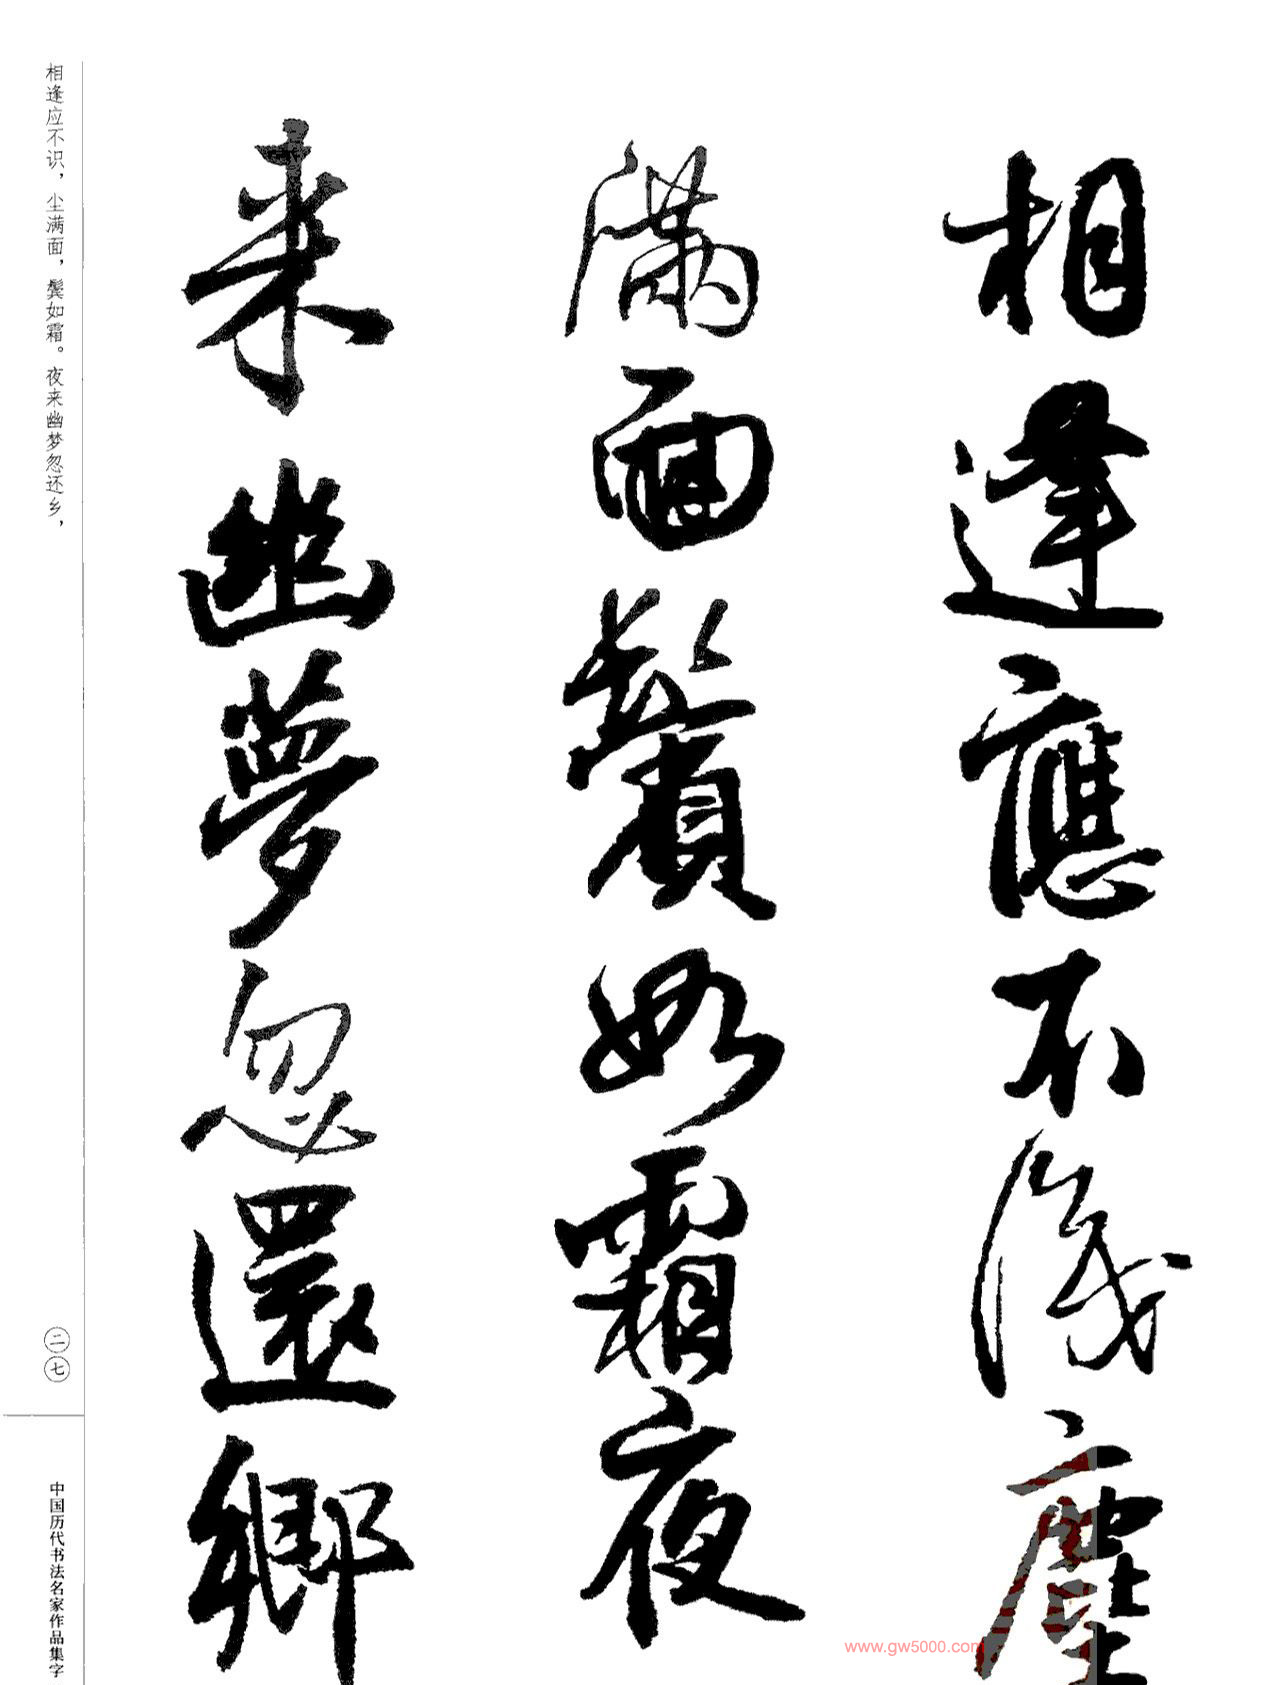 相逢應不識塵
滿面鬢如霜夜
來幽夢忽還鄉
相逢应不识，尘满面，鬓如霜。夜来幽梦忽还乡，
二七
中国历代书法名家作品集字
www.gw5000.com